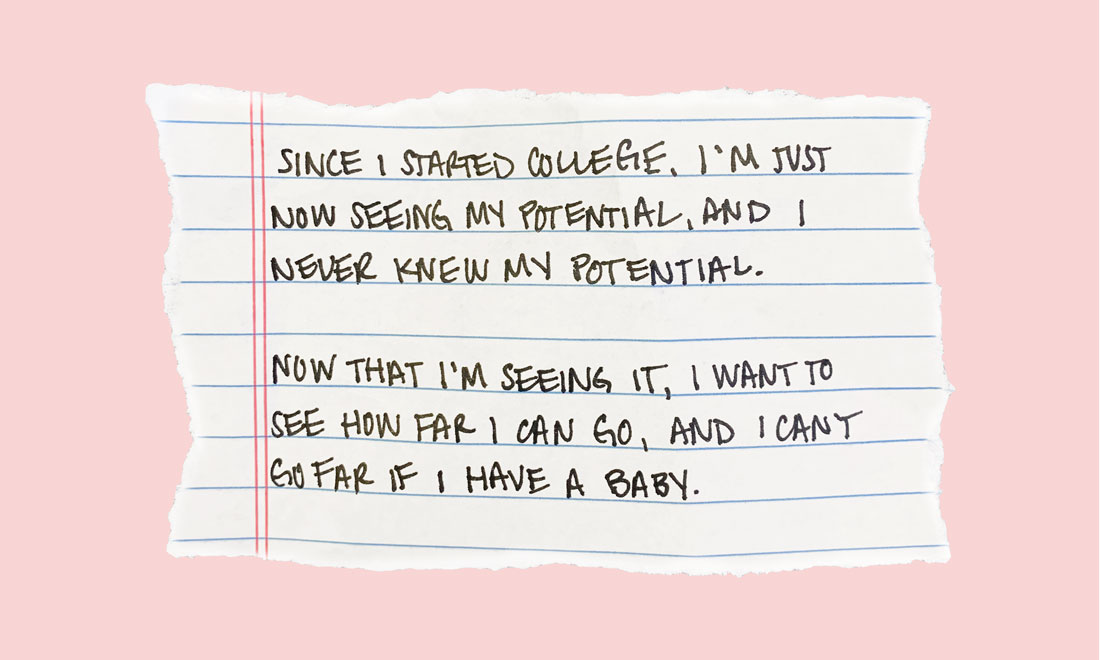 SINCE I STARTED COLLEGE, I'M JUST
NOW SEEING MY POTENTIAL, AND I
NEVER KNEW MY POTENTIAL.
NOW THAT I'M SEEING IT, I WANT TO
SEE HOW FAR I CAN GO, AND I CAN'T
GO FAR IF I HAVE A BABY.